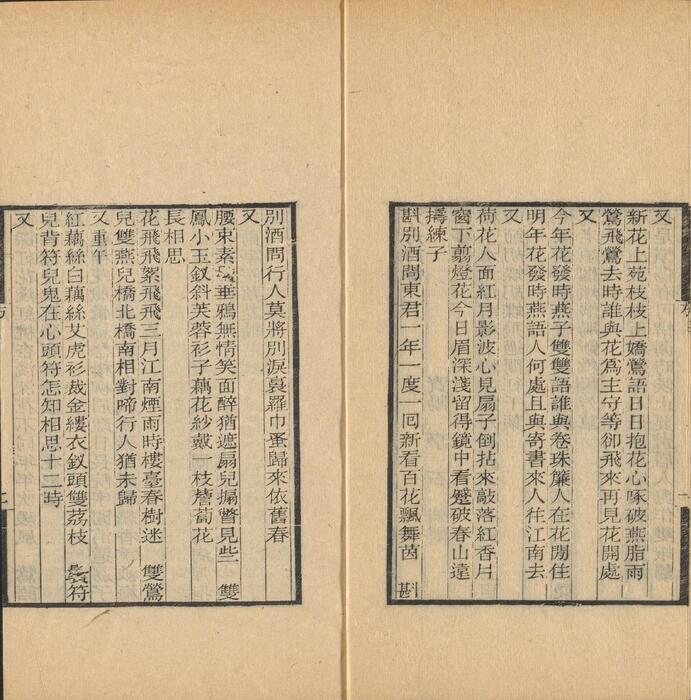 又
新花上苑枝枝上嬌鶯語日日抱花心啄破燕脂雨
鶯飛鶯去時誰與花爲主守等卻飛來再見花開處
又
今年花發時燕子雙雙語誰與卷珠簾人在花閒住
明年花發時燕語人何處且與寄書來人往江南去
又
荷花人面紅月影波心見扇子倒拈來敲落紅香片
窗下翦燈花今日眉深淺留得鏡中看蹙破春山遠
擣練子
斟別酒問東君一年一度一回新看百花飄舞茵 斟
別酒問行人莫將別淚裛羅巾蚤歸來依舊春
又
腰束素 垂鴉無情笑面醉猶遮扇兒搧瞥見些 雙
鳳小玉釵斜芙蓉衫子藕花紗戴一枝薝蔔花
長相思
花飛飛絮飛飛三月江南煙雨時樓臺春樹迷 雙鶯
兒雙燕兒橋北橋南相對啼行人猶未歸
又 重午
紅藕絲白藕絲艾虎衫裁金縷衣釵頭雙荔枝 鬢符
兒背符兒鬼在心頭符怎知相思十二時
又